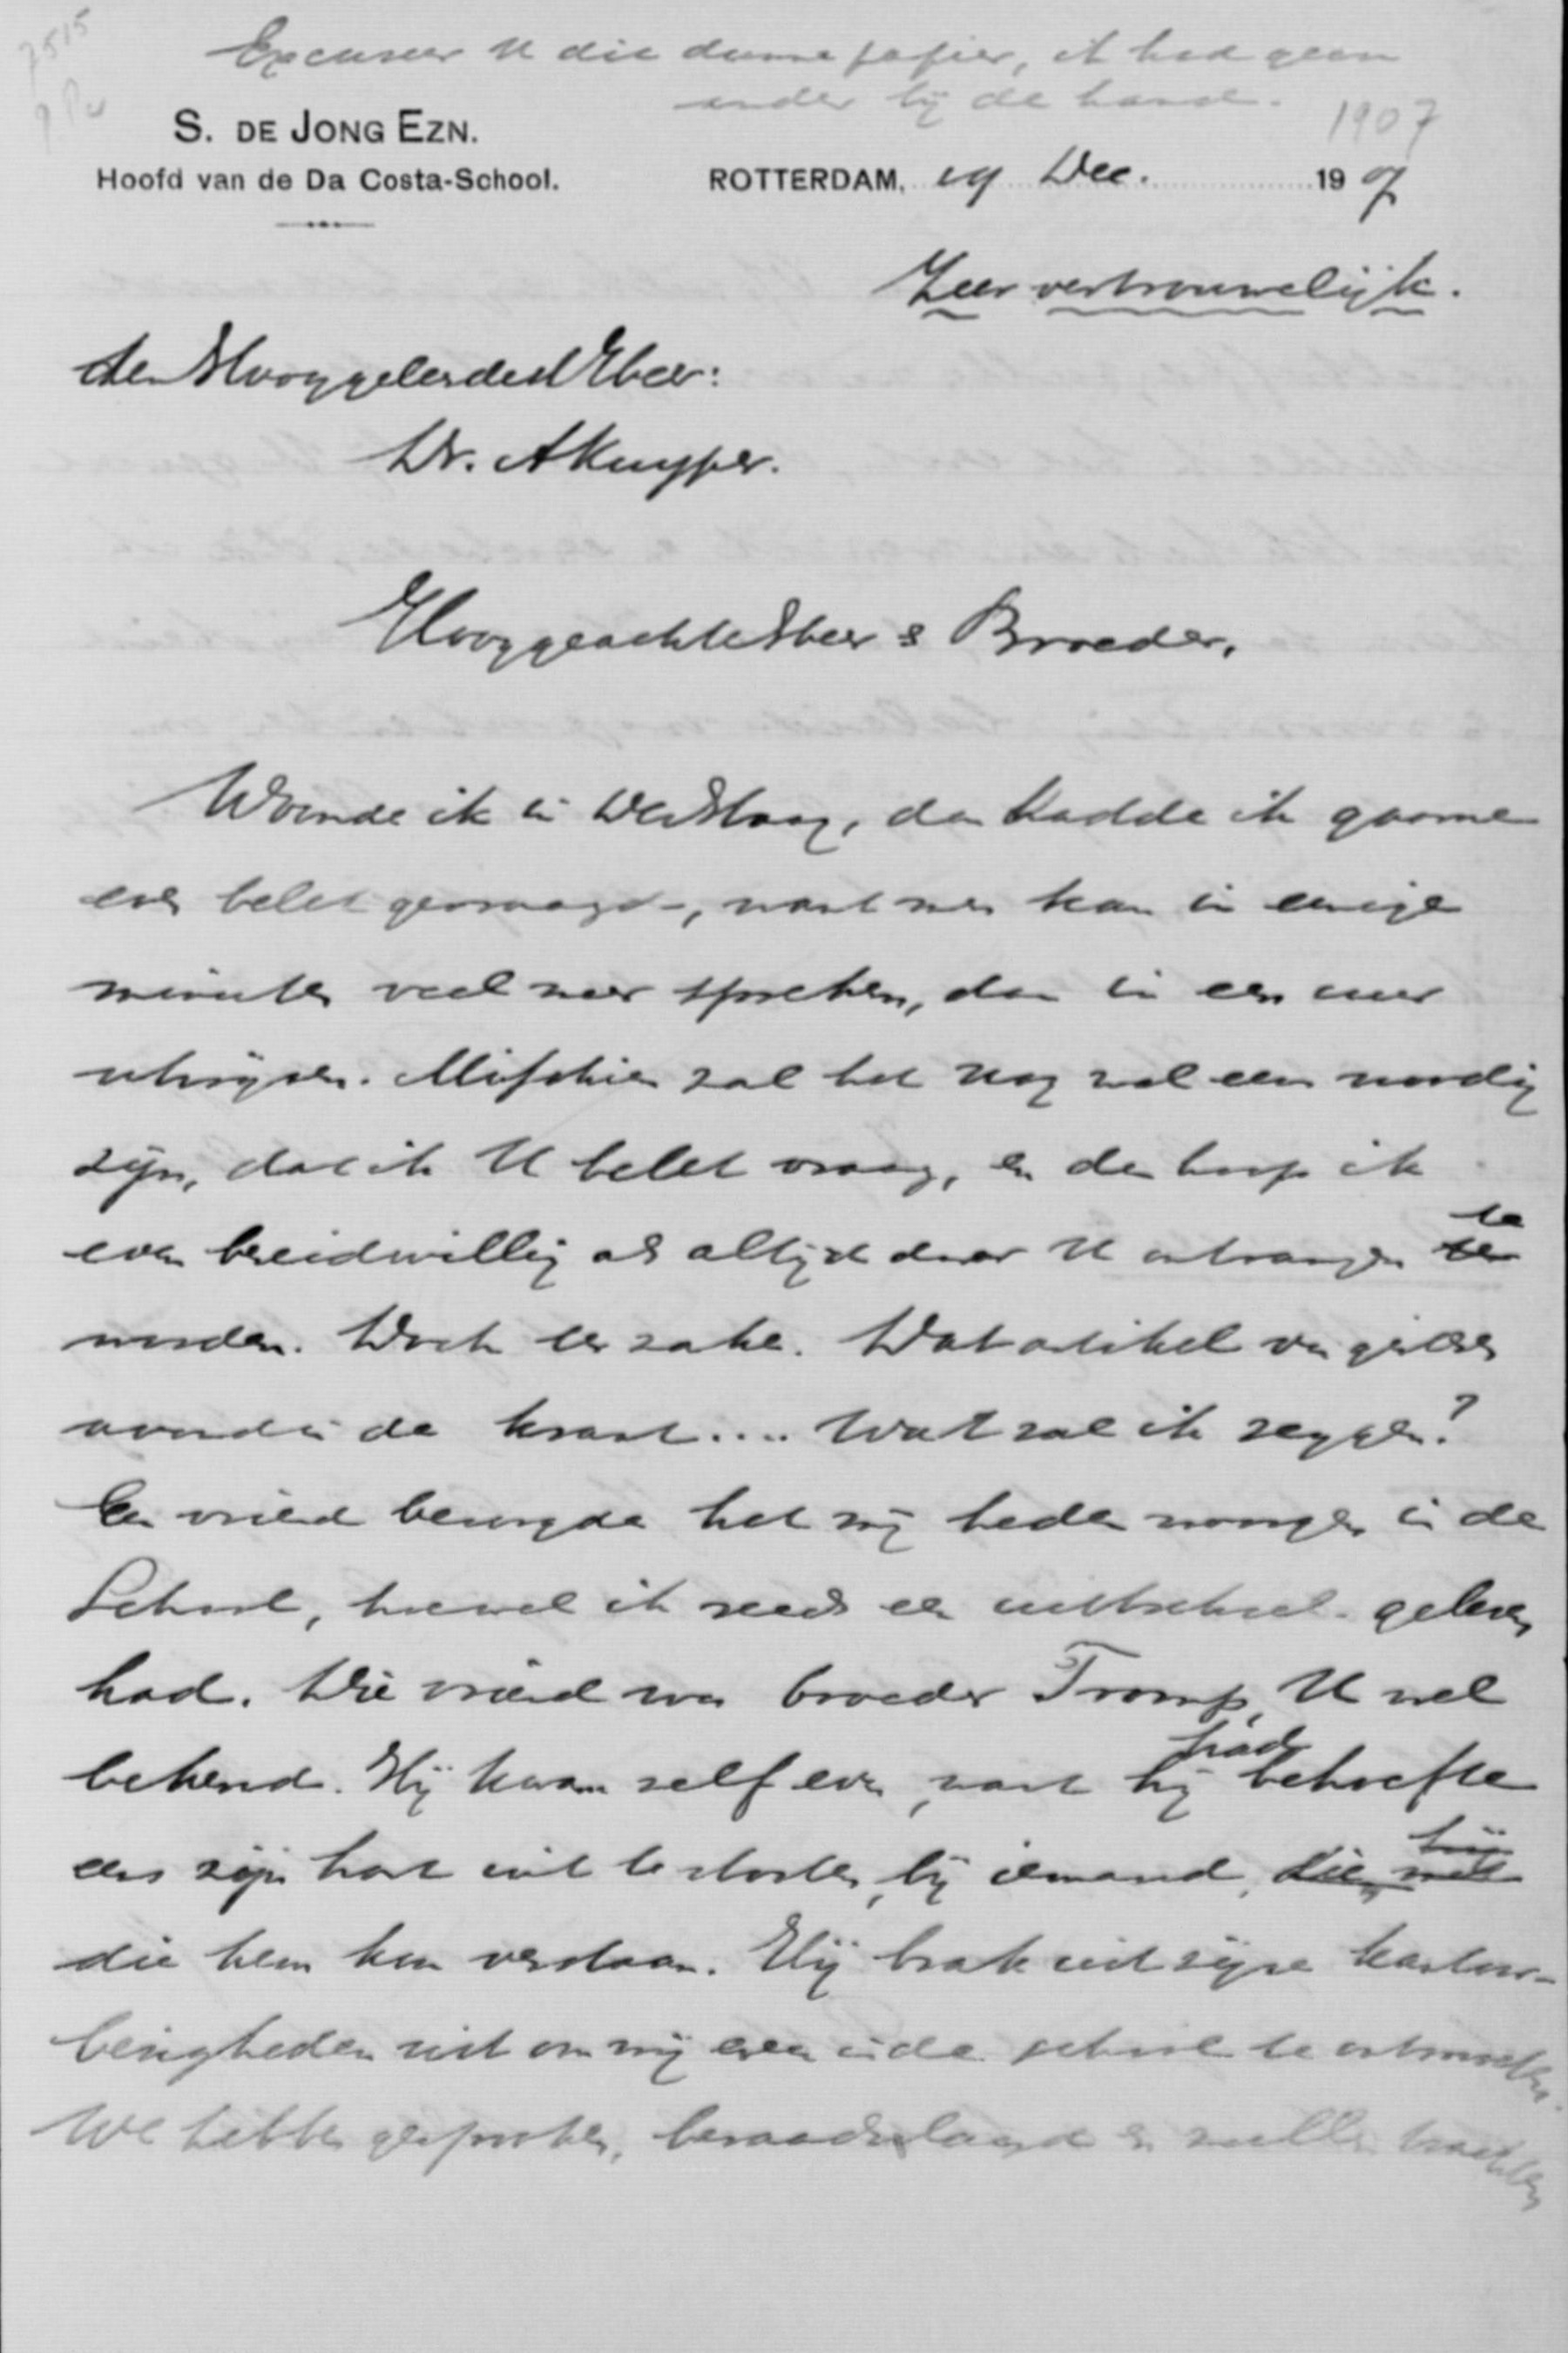 7515
Excuseer U dit dunne papier, ik had geen
ander bij de hand.
1907
S. DE JONG EZN.
Hoofd van de Da Costa-School.
ROTTERDAM, 19 Dec. 1907
Zeer vertrouwelijk.
den Hooggeleerden Heer:
Dr. A Kuyper.
Hooggeachte Heer & Broeder,
Woonde ik in Den Haag, dan hadde ik gaarne
even belet gevraagd, want men kan in eenige
minuten veel meer spreken, dan in een uur
schrijven. Misschien zal het nog wel eens noodig
zijn, dat ik U belet vraag, en dan hoop ik
even bereidwillig als altijd door U ontvangen te
worden. Doch ter zake. Dat artikel van gisteren
avond in de krant.... Wat zal ik zeggen?
Een vriend bezorgde het mij heden morgen in de
School, hoewel ik reeds een uittreksel gelezen
had. Die vriend was broeder Tromp, U wel
bekend. Hij kwam zelf even, want hij had behoefte
eens zijn hart uit te storten, bij iemand,
die hem kon verstaan. Hij brak uit zijne kantoor-
bezigheden uit om mij even in de school te ontmoeten.
We hebben gesproken, beraadslaagd en zullen trachten